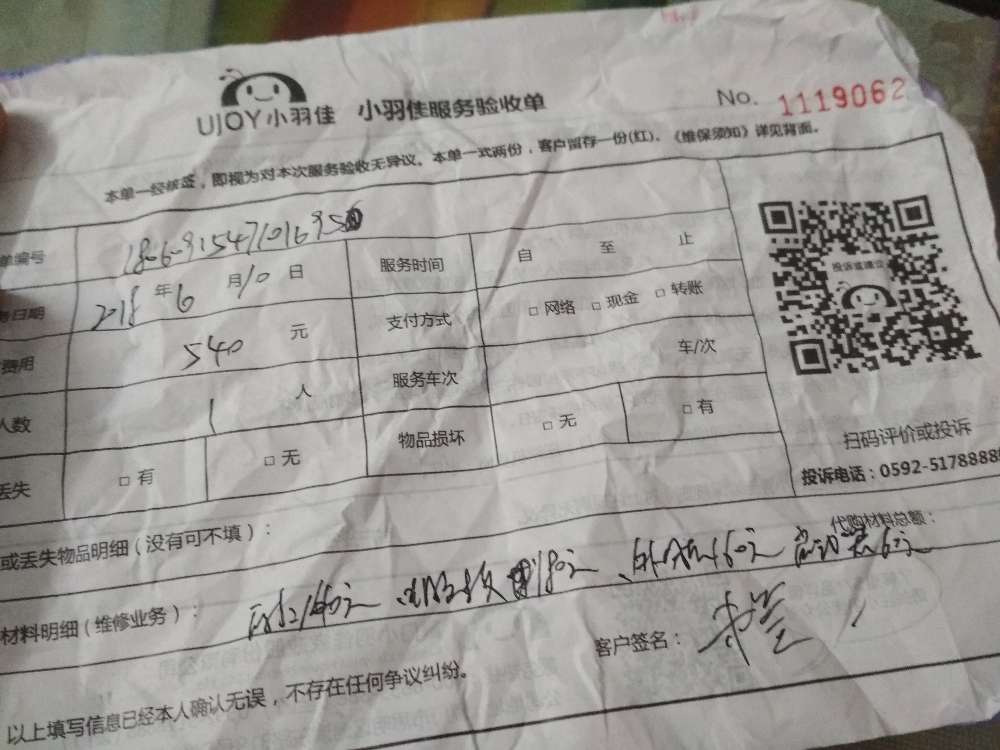 UJOY小羽佳 小羽佳服务验收单 No. 1119062
本单一经核签，即视为对本次服务验收无异议。本单一式两份，客户留存一份(红)、《维保须知》详见背面。
单编号
服务时间 自 至 止
务日期 2018 年 6 月 10 日
支付方式 □ 网络 □ 现金 □ 转账
费用 540 元
服务车次 车/次
人数 1 人
物品损坏 □ 无 □ 有
丢失 □ 有 □ 无
投诉或建议
扫码评价或投诉
投诉电话：0592-5178888
或丢失物品明细（没有可不填）：
代购材料总额：
材料明细（维修业务）：
客户签名：
以上填写信息已经本人确认无误，不存在任何争议纠纷。